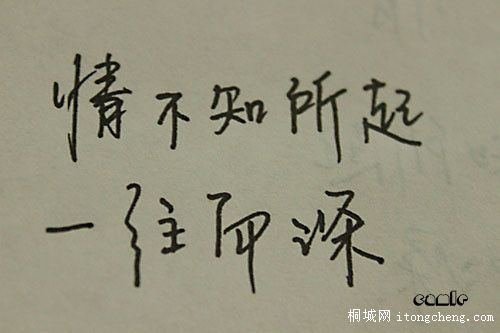 情不知所起
一往而深
comic
桐城网 itongcheng.com